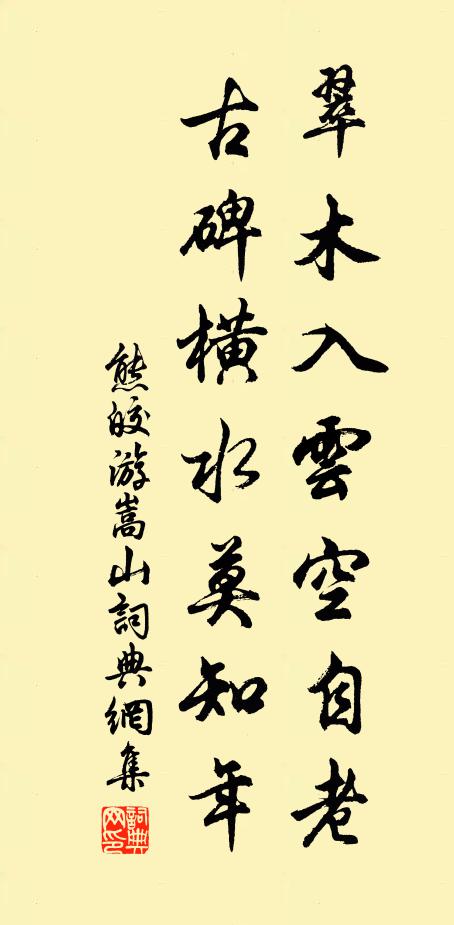 翠木入雲空自老
古碑橫水莫知年
熊皎游嵩山詞典網集
詞典网印